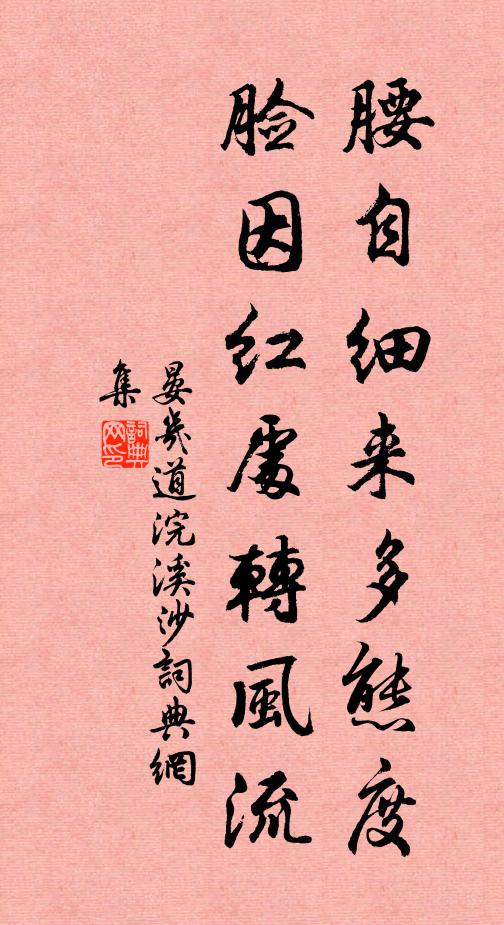 腰自细来多態度
脸因红處轉風流
晏幾道浣溪沙詞典網
集
詞典網印